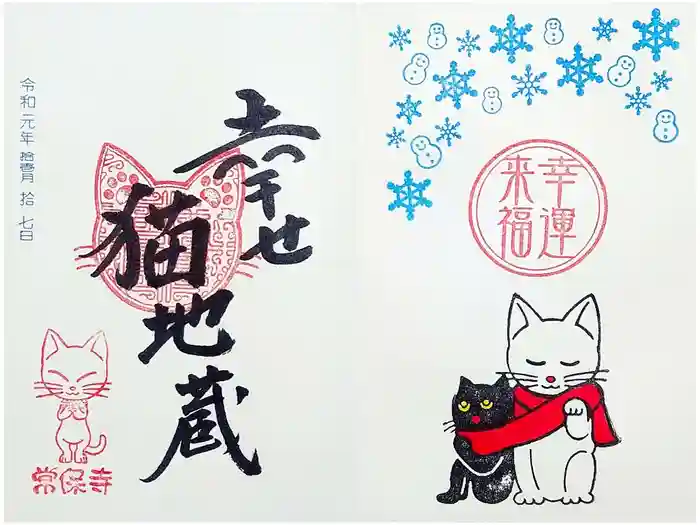 幸せ
猫地蔵
令和元年 拾壱月 拾七日
常保寺
幸運
来福